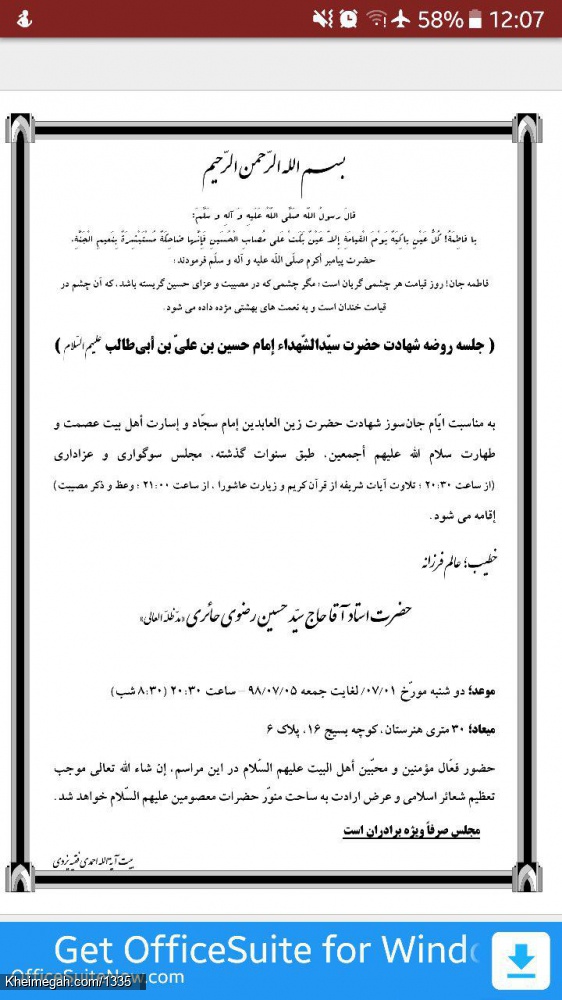 58% 12:07
بسم الله الرّحمن الرّحیم
قالَ رسولُ اللّه صلَّی اللّهُ عَلَیهِ وَ آلِه وَ سَلَّمَ:
یا فاطِمَةُ! کُلُّ عَیْنٍ باکِیَةٌ یَومَ القِیامَةِ إلاّ عَیْنٌ بَکَتْ عَلی مُصابِ الْحُسَینِ فَإنَّها ضاحِکَةٌ مُسْتَبْشِرَةٌ بِنَعیمِ الْجَنَّةِ.
حضرت پیامبر أکرم صلّی اللّه علیه و آله و سلّم فرمودند:
فاطمه جان! روز قیامت هر چشمی گریان است؛ مگر چشمی که در مصیبت و عزای حسین گریسته باشد، که آن چشم در
قیامت خندان است و به نعمت های بهشتی مژده داده می شود.
( جلسه روضه شهادت حضرت سیّدالشّهداء إمام حسین بن علیّ بن أبی‌طالب علیهم السّلام )
به مناسبت ایّام جان‌سوز شهادت حضرت زین العابدین إمام سجّاد و إسارت أهل بیت عصمت و
طهارت سلام الله علیهم أجمعین، طبق سنوات گذشته، مجلس سوگواری و عزاداری
(از ساعت ۲۰:۳۰ ؛ تلاوت آیات شریفه از قرآن کریم و زیارت عاشورا ، از ساعت ۲۱:۰۰ ؛ وعظ و ذکر مصیبت)
إقامه می شود.
خطیب؛ عالم فرزانه
حضرت استاد آقا حاج سیّد حسین رضوی حائری «مدّ ظلّه العالی»
موعد؛ دو شنبه مورّخ ۰۷/۰۱/ لغایت جمعه ۹۸/۰۷/۰۵ - ساعت ۲۰:۳۰ (۸:۳۰ شب)
میعاد؛ ۳۰ متری هنرستان، کوچه بسیج ۱۶، پلاک ۶
حضور فعّال مؤمنین و محبّین أهل البیت علیهم السّلام در این مراسم، إن شاء الله تعالی موجب
تعظیم شعائر اسلامی و عرض ارادت به ساحت منوّر حضرات معصومین علیهم السّلام خواهد شد.
مجلس صرفاً ویژه برادران است
بیت آیة الله احمدی فقیه یزدی
Get OfficeSuite for Wind
OfficeSuiteNow.com
Kheimegah.com/1335